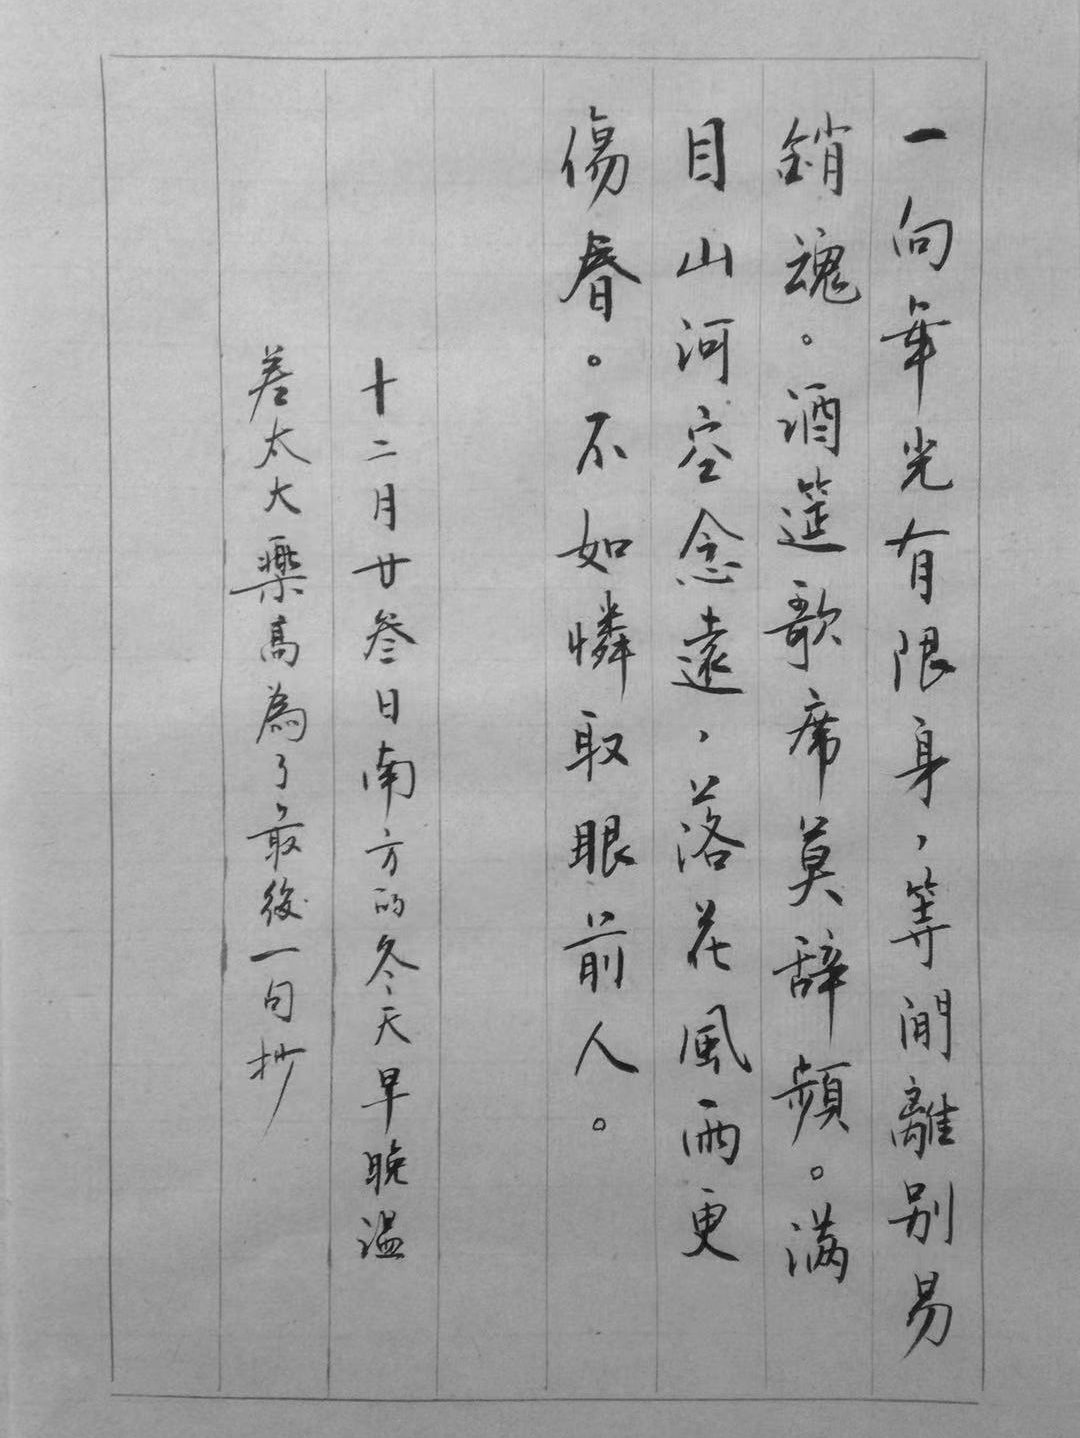 一向年光有限身，等閒離别易
銷魂。酒筵歌席莫辞頻。满
目山河空念遠，落花風雨更
傷春。不如憐取眼前人。
十二月廿叁日南方的冬天早晚温
差太大藥高為了最後一句抄